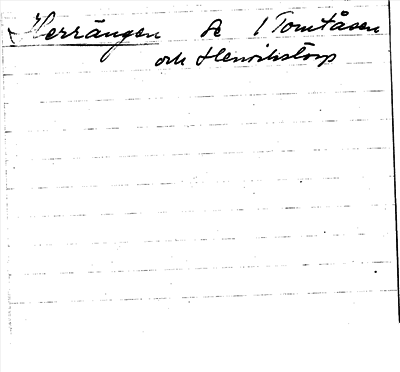 Herrängen se 1 Tomtåsen
och Henrikstorp